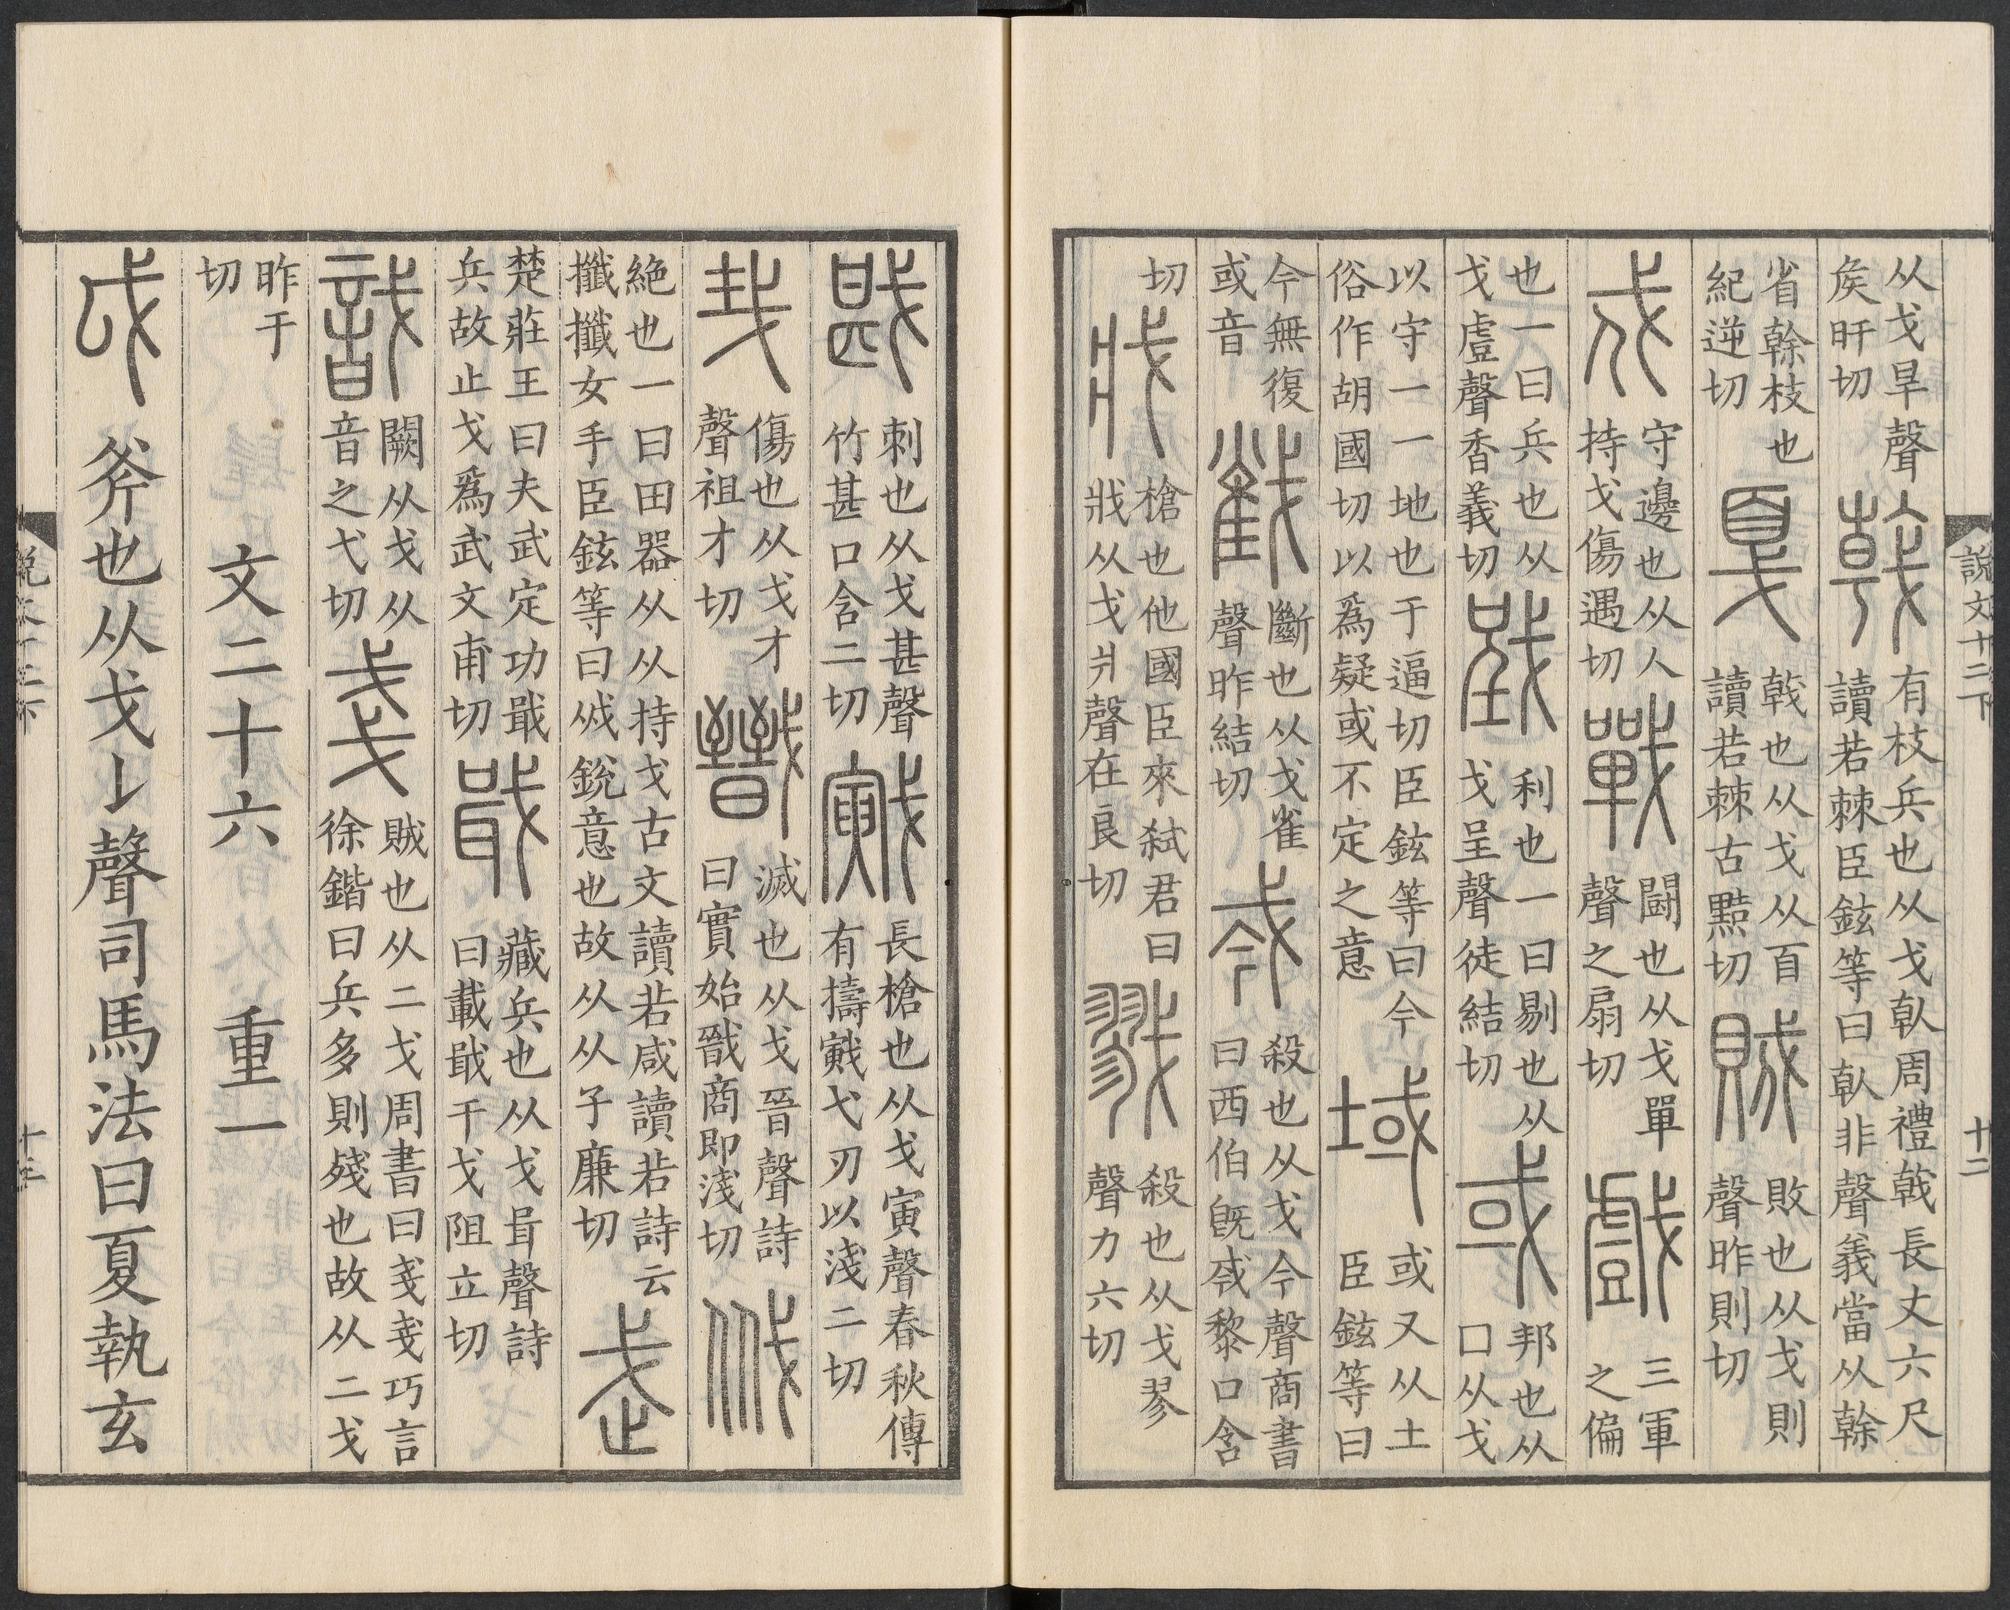 説文十二下
十二
从戈旱聲矦旰切 戟 有枝兵也从戈倝周禮戟長丈六尺讀若棘臣鉉等曰倝非聲義當从榦
省榦枝也紀逆切 戛 戟也从戈从𦣻讀若棘古黠切 賊 敗也从戈則聲昨則切
戍 守邊也从人持戈傷遇切 戰 鬭也从戈單聲之扇切 戲 三軍之偏
也一曰兵也从戈䖒聲香義切 𢧜 利也一曰剔也从戈呈聲徒結切 或 邦也从囗从戈
以守一一地也于逼切臣鉉等曰今俗作胡國切以爲疑或不定之意 域 或又从土臣鉉等曰
今無復或音 𢧵 斷也从戈雀聲昨結切 𢦟 殺也从戈今聲商書曰西伯旣𢦟黎口含
切 戕 槍也他國臣來弑君曰戕从戈爿聲在良切 戮 殺也从戈翏聲力六切
戡 刺也从戈甚聲竹甚口含二切 戭 長槍也从戈寅聲春秋傳有擣戭弋刃以淺二切
𢦏 傷也从戈才聲祖才切 戬 滅也从戈晉聲詩曰實始戬商即淺切 𢦔
絶也一曰田器从从持戈古文讀若咸讀若詩云攕攕女手臣鉉等曰𢦔銳意也故从从子廉切 武
楚莊王曰夫武定功戢兵故止戈爲武文甫切 戢 藏兵也从戈咠聲詩曰載戢干戈阻立切
戠 闕从戈从音之弋切 戔 賊也从二戈周書曰戔戔巧言徐鍇曰兵多則殘也故从二戈
昨干切
文二十六 重一
戉 斧也从戈𠄌聲司馬法曰夏執玄
十三